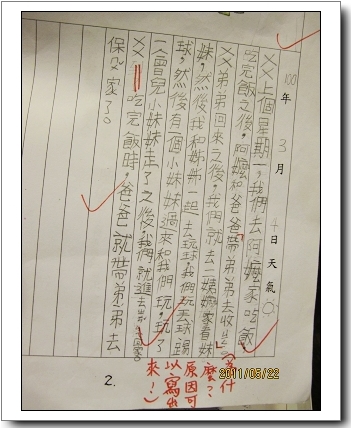 100年3月 日天氣
××上個星期一,我們去阿嬤家吃飯
吃完飯之後,阿嬤和爸爸帶弟弟去收
××弟弟回來之後,我們就去 姨嬤家看妹
妹,然後,我和姊姊一起去玩球,我們玩丟球、踢
球,然後有一個小妹妹過來和我們玩,玩了
一會兒小妹妹走了之後,我們就進去
××吃完飯時,爸爸就帶弟弟去
保母家了。
(為什
麼?
原因可
以寫出
來!)
2.
2011/05/22